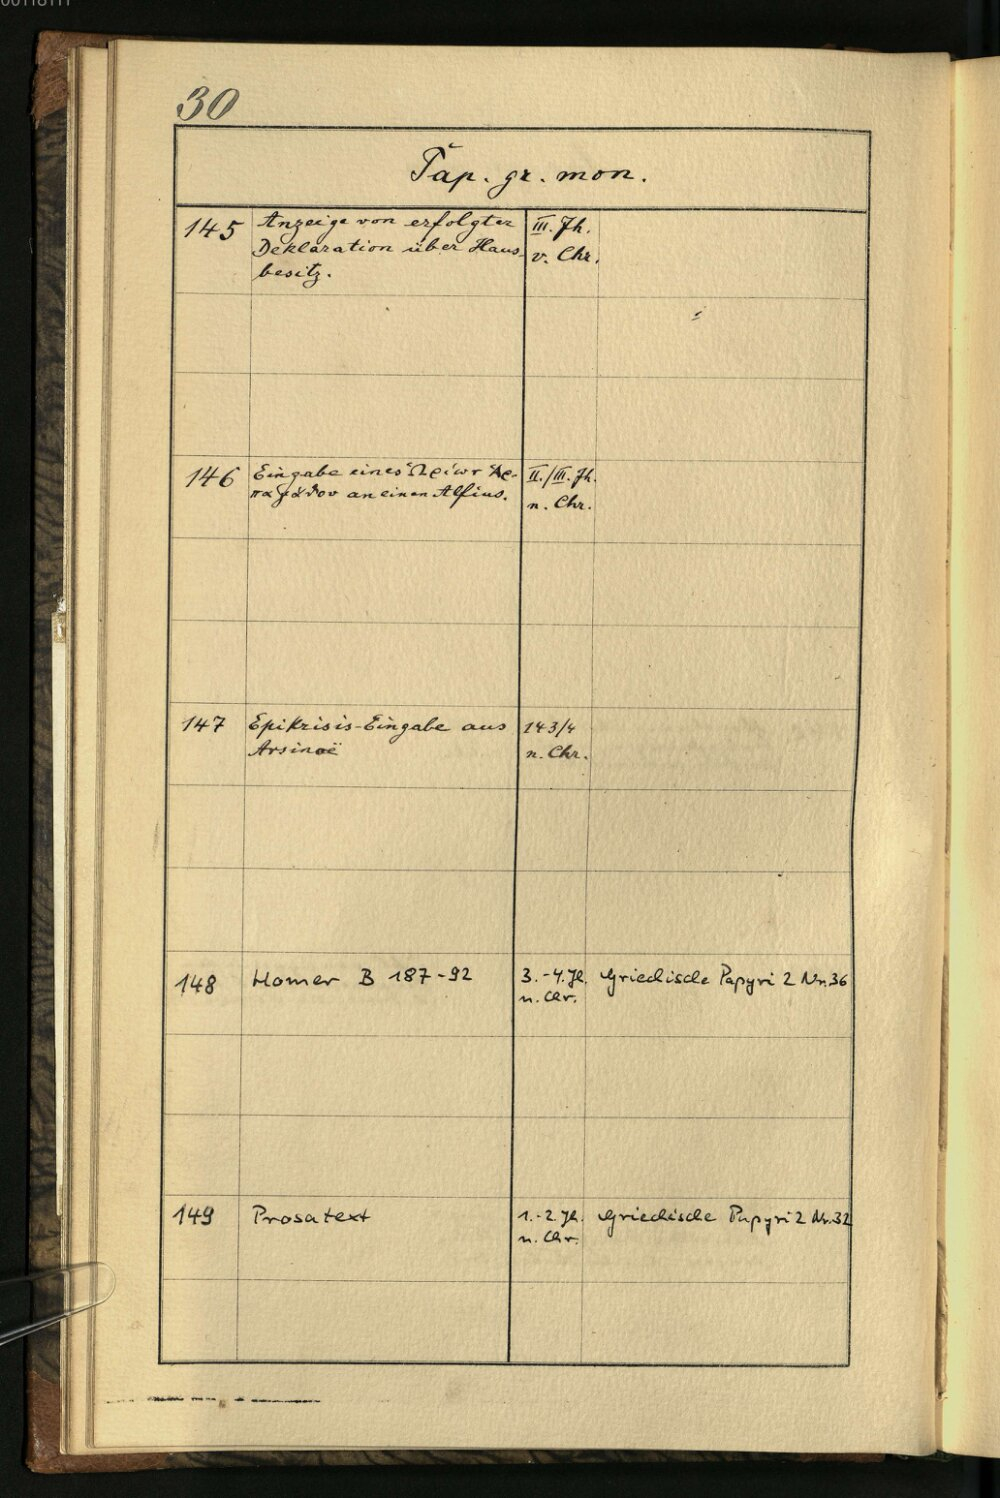 30
Pap. gr. mon.
145 Anzeige von erfolgter III. Jh.
Deklaration über Haus- v. Chr.
besitz.
146 Eingabe eines Ὡρίων Ἁρ- II./III. Jh.
παγάθου an einen Alfius. n. Chr.
147 Epikrisis-Eingabe aus 143/4
Arsinoë n. Chr.
148 Homer B 187-92 3.-4. Jh. Griechische Papyri 2 Nr. 36
n. Chr.
149 Prosatext 1.-2. Jh. Griechische Papyri 2 Nr. 32
n. Chr.